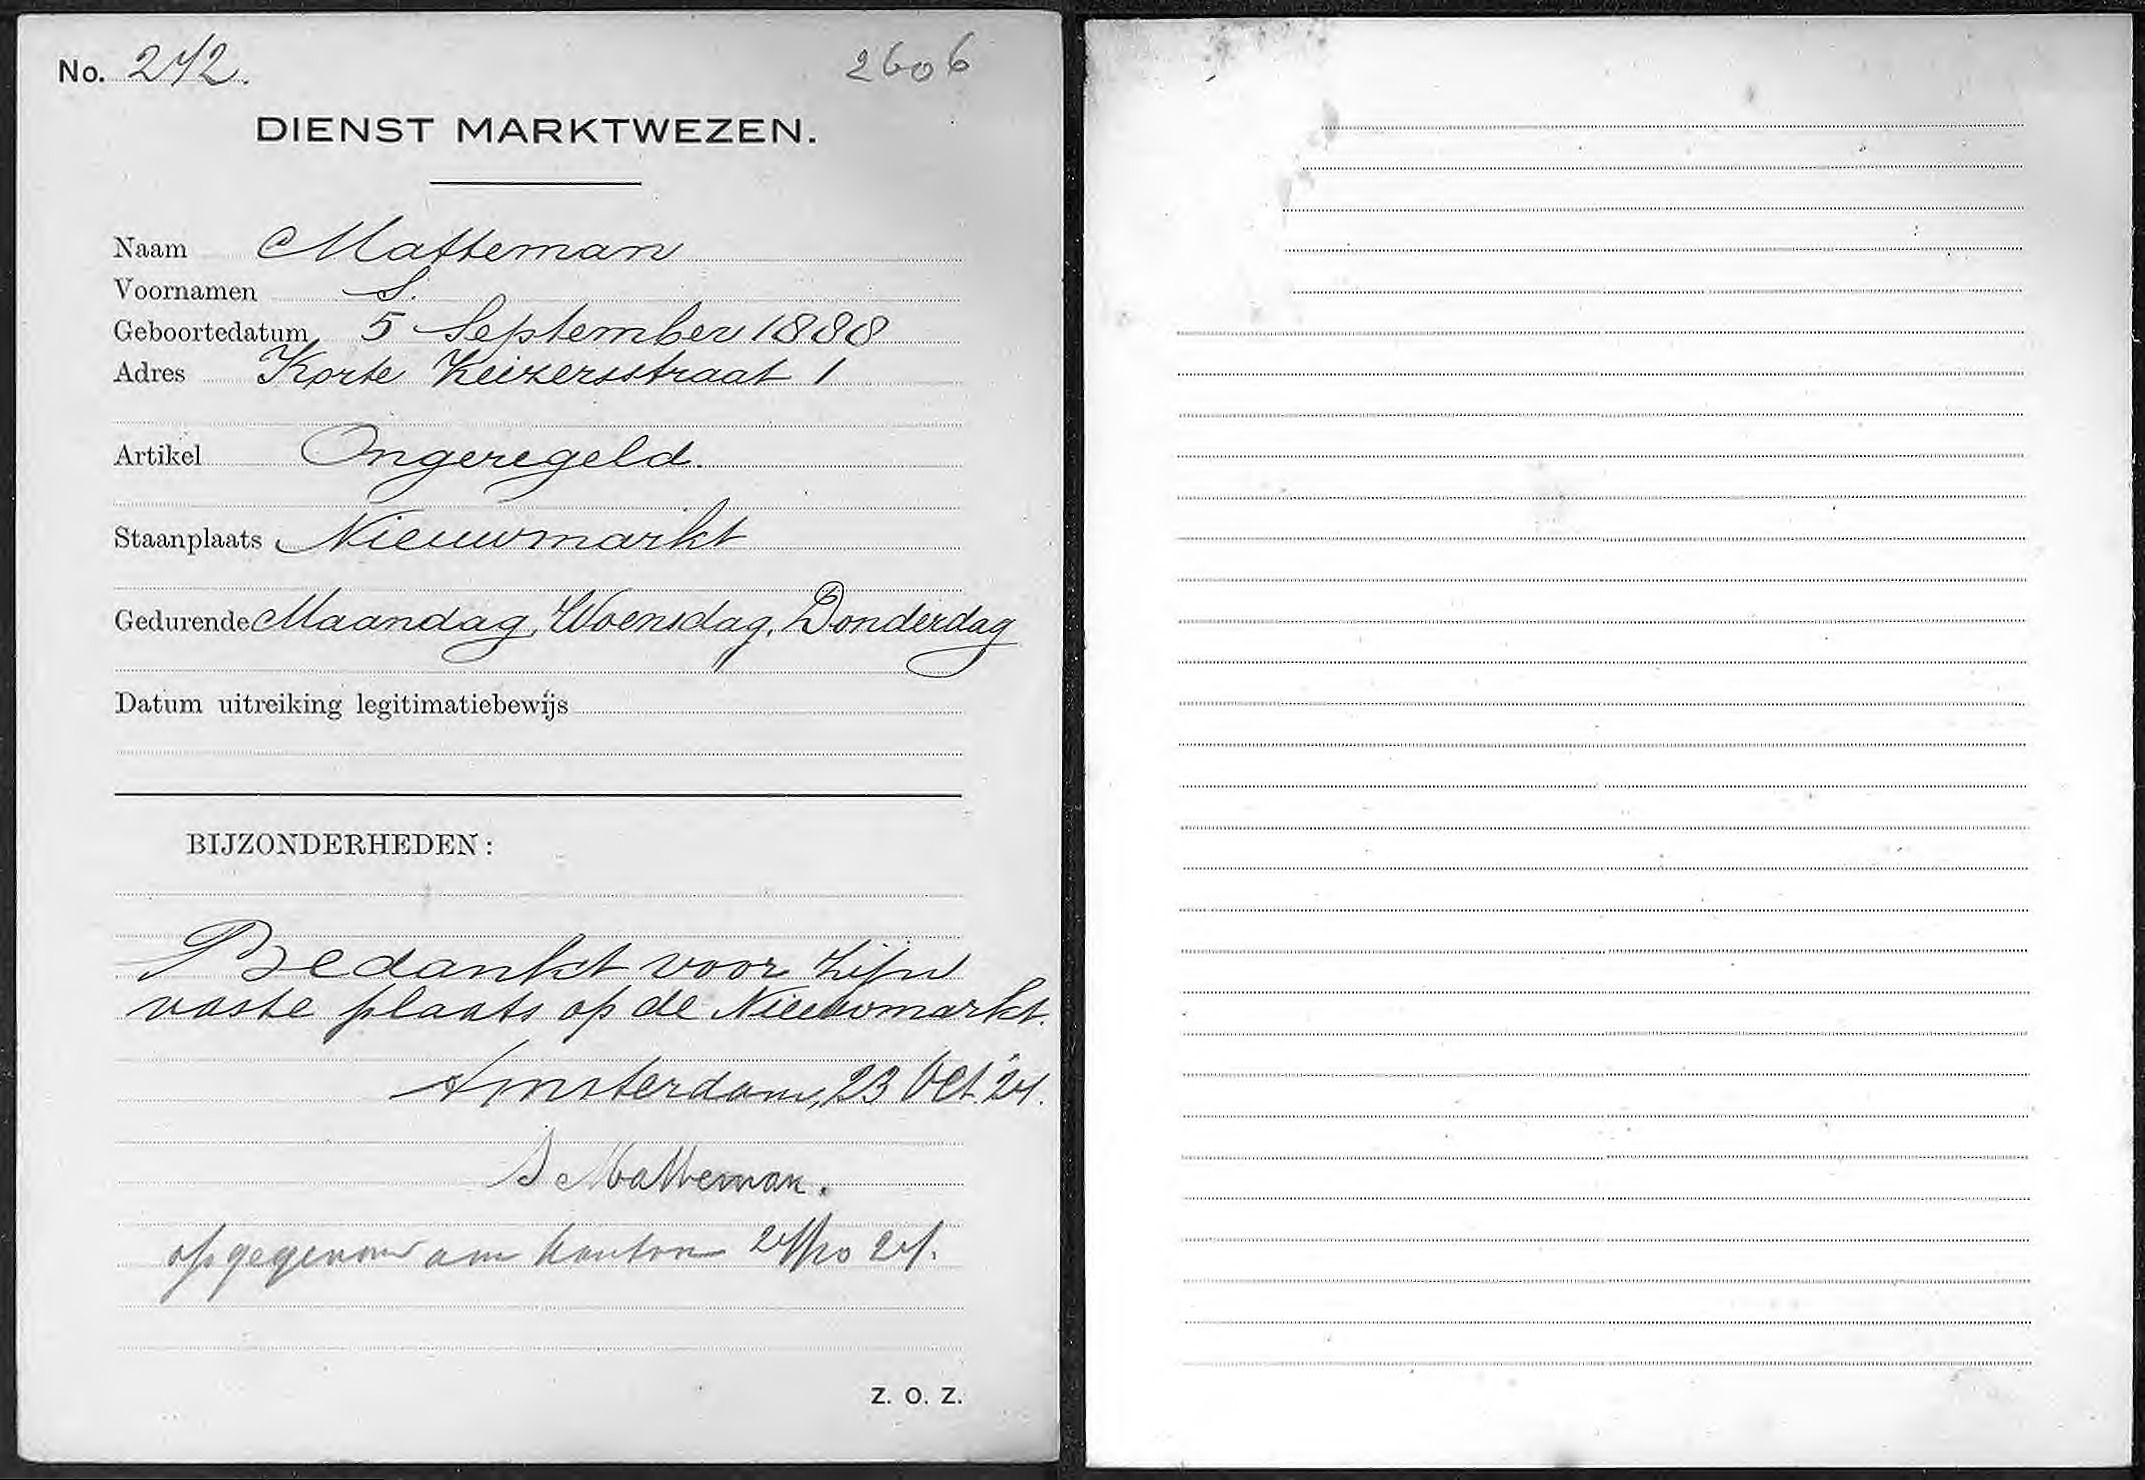 No. 242. 2606
DIENST MARKTWEZEN.
Naam Matteman
Voornamen S.
Geboortedatum 5 September 1888
Adres Korte Keizersstraat 1
Artikel Ongeregeld.
Staanplaats Nieuwmarkt
Gedurende Maandag, Woensdag, Donderdag
Datum uitreiking legitimatiebewijs
BIJZONDERHEDEN:
Bedankt voor zijn
vaste plaats op de Nieuwmarkt.
Amsterdam, 23 Oct. '24.
S Matteman.
24/10 24.
Z. O. Z.